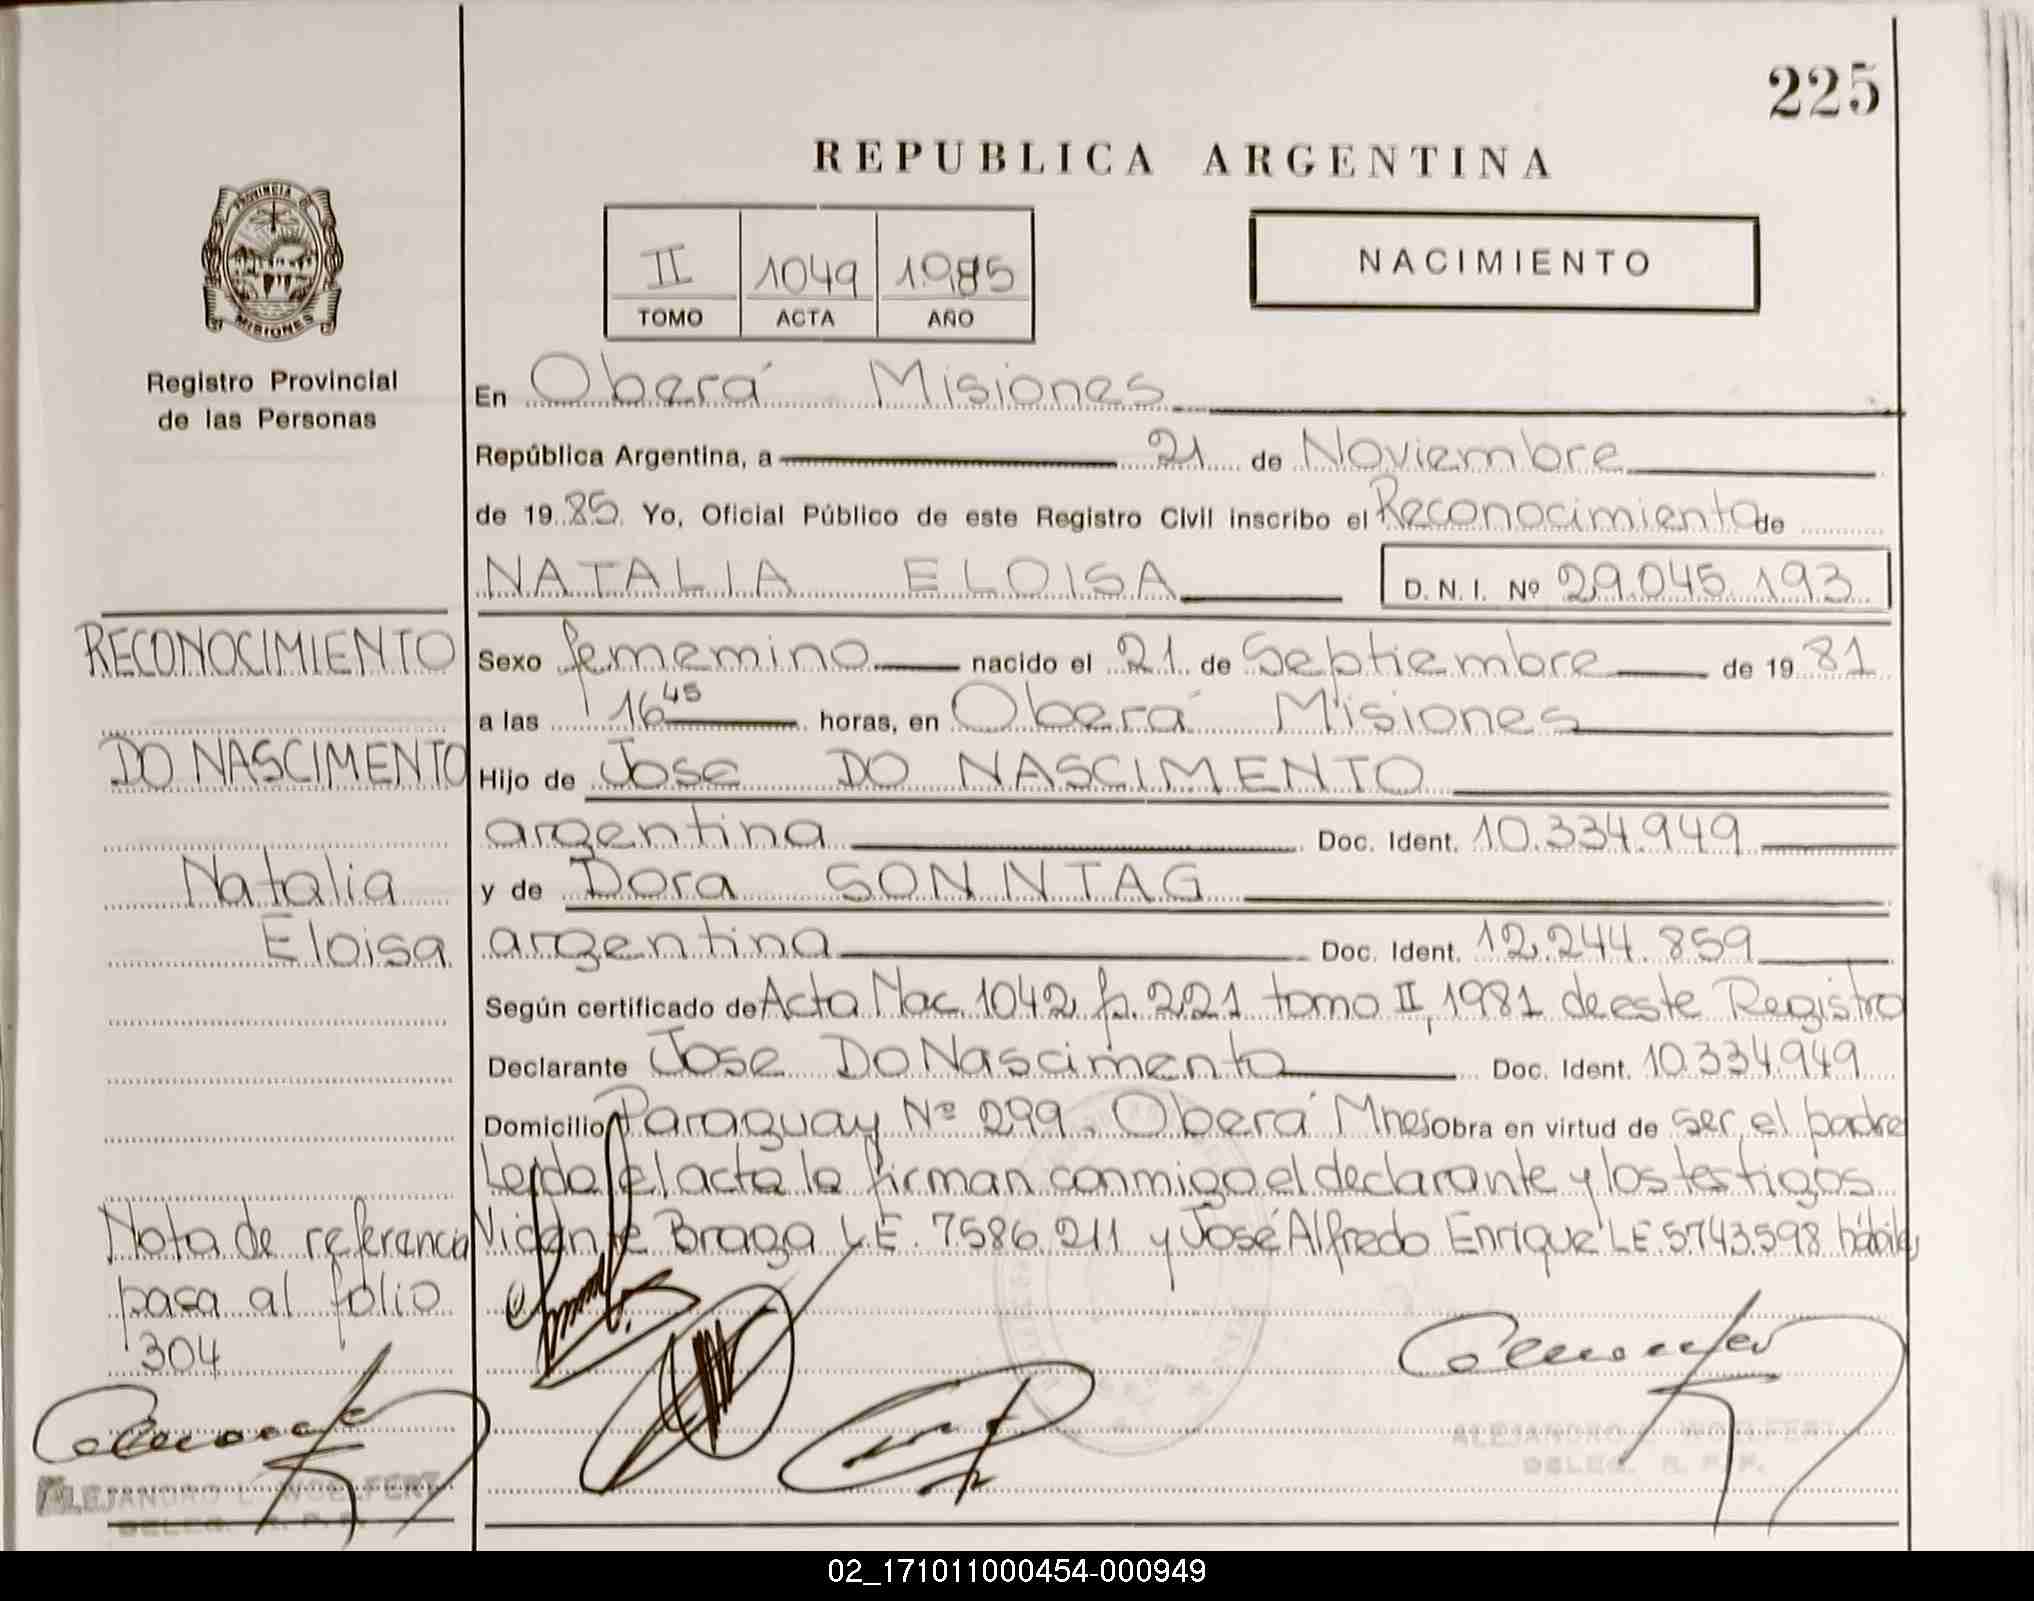 225
REPUBLICA ARGENTINA
PROVINCIA DE
MISIONES
Registro Provincial
de las Personas
II 1049 1985
TOMO ACTA AÑO
NACIMIENTO
En Oberá Misiones
República Argentina, a 21 de Noviembre
de 1985 Yo, Oficial Público de este Registro Civil inscribo el Reconocimiento de
NATALIA ELOISA D.N.I. Nº 29.045.193
Sexo femenino nacido el 21 de Septiembre de 1981
a las 16 45 horas, en Oberá Misiones
Hijo de Jose DO NASCIMENTO
argentina Doc. Ident. 10.334.949
y de Dora SONNTAG
argentina Doc. Ident. 12.244.859
Según certificado de Acta Nac. 1042 fo. 221 tomo II, 1981 de este Registro
Declarante Jose Do Nascimento Doc. Ident. 10.334.949
Domicilio Paraguay Nº 299. Oberá Mnes Obra en virtud de ser el padre
Leida el acta la firman conmigo el declarante y los testigos
Vicente Braga L.E. 7586.211 y José Alfredo Enrique LE 5.743.598 hábiles
RECONOCIMIENTO
DO NASCIMENTO
Natalia
Eloisa
Nota de referencia
pasa al folio
304
ALEJANDRO L. WOELFERT
DELEG. R. P. P.
ALEJANDRO L. WOELFERT
DELEG. R. P. P.
02_171011000454-000949